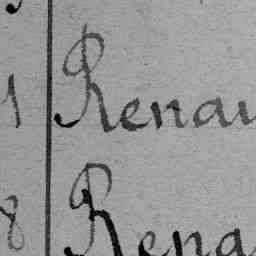 1 Renau
8 Rena